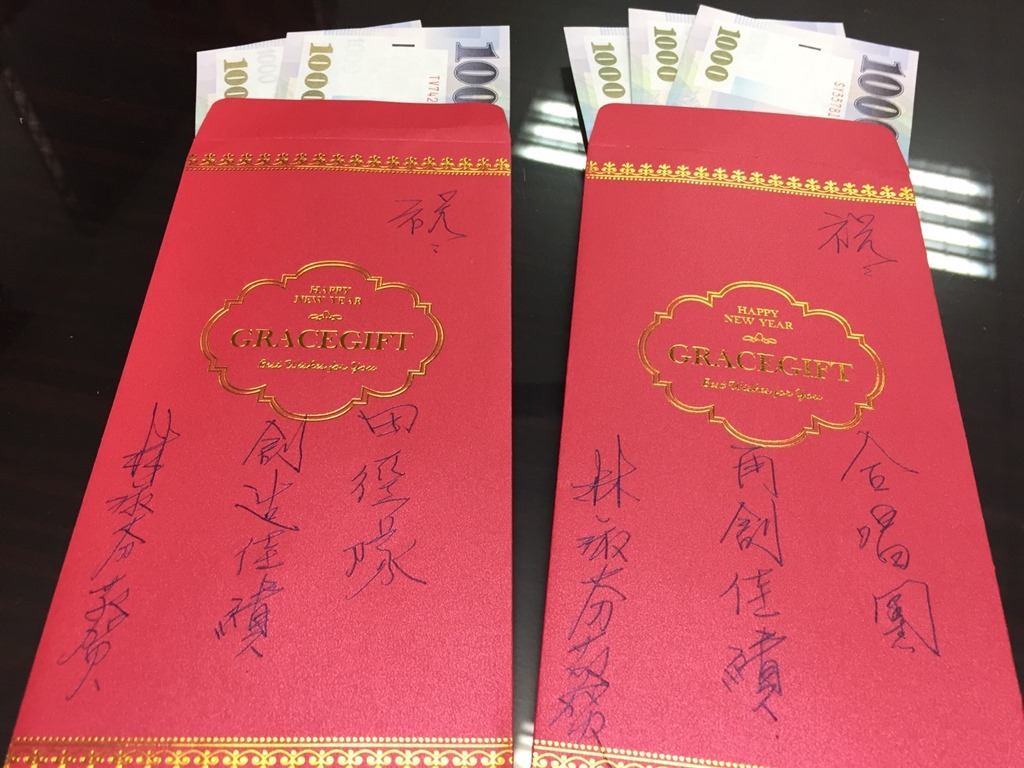 1000
1000
1000
TV742
祝
HAPPY
NEW YEAR
GRACEGIFT
Best Wishes for You
田徑隊
創造佳績
林淑芬敬賀
1000
1000
1000
1000
SY55781
祝
HAPPY
NEW YEAR
GRACEGIFT
Best Wishes for You
合唱團
再創佳績
林淑芬敬賀